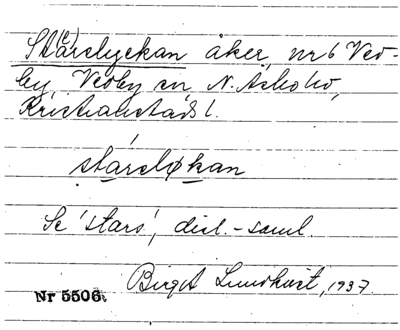 St(e)arslyckan åker, nr 6 Ved-
by, Vedby sn N. Åsbo hd,
Kristianstads l.
stársløkan
Se 'stars', dial.-saml.
Birgit Lundkvist, 1937.
Nr 5506.